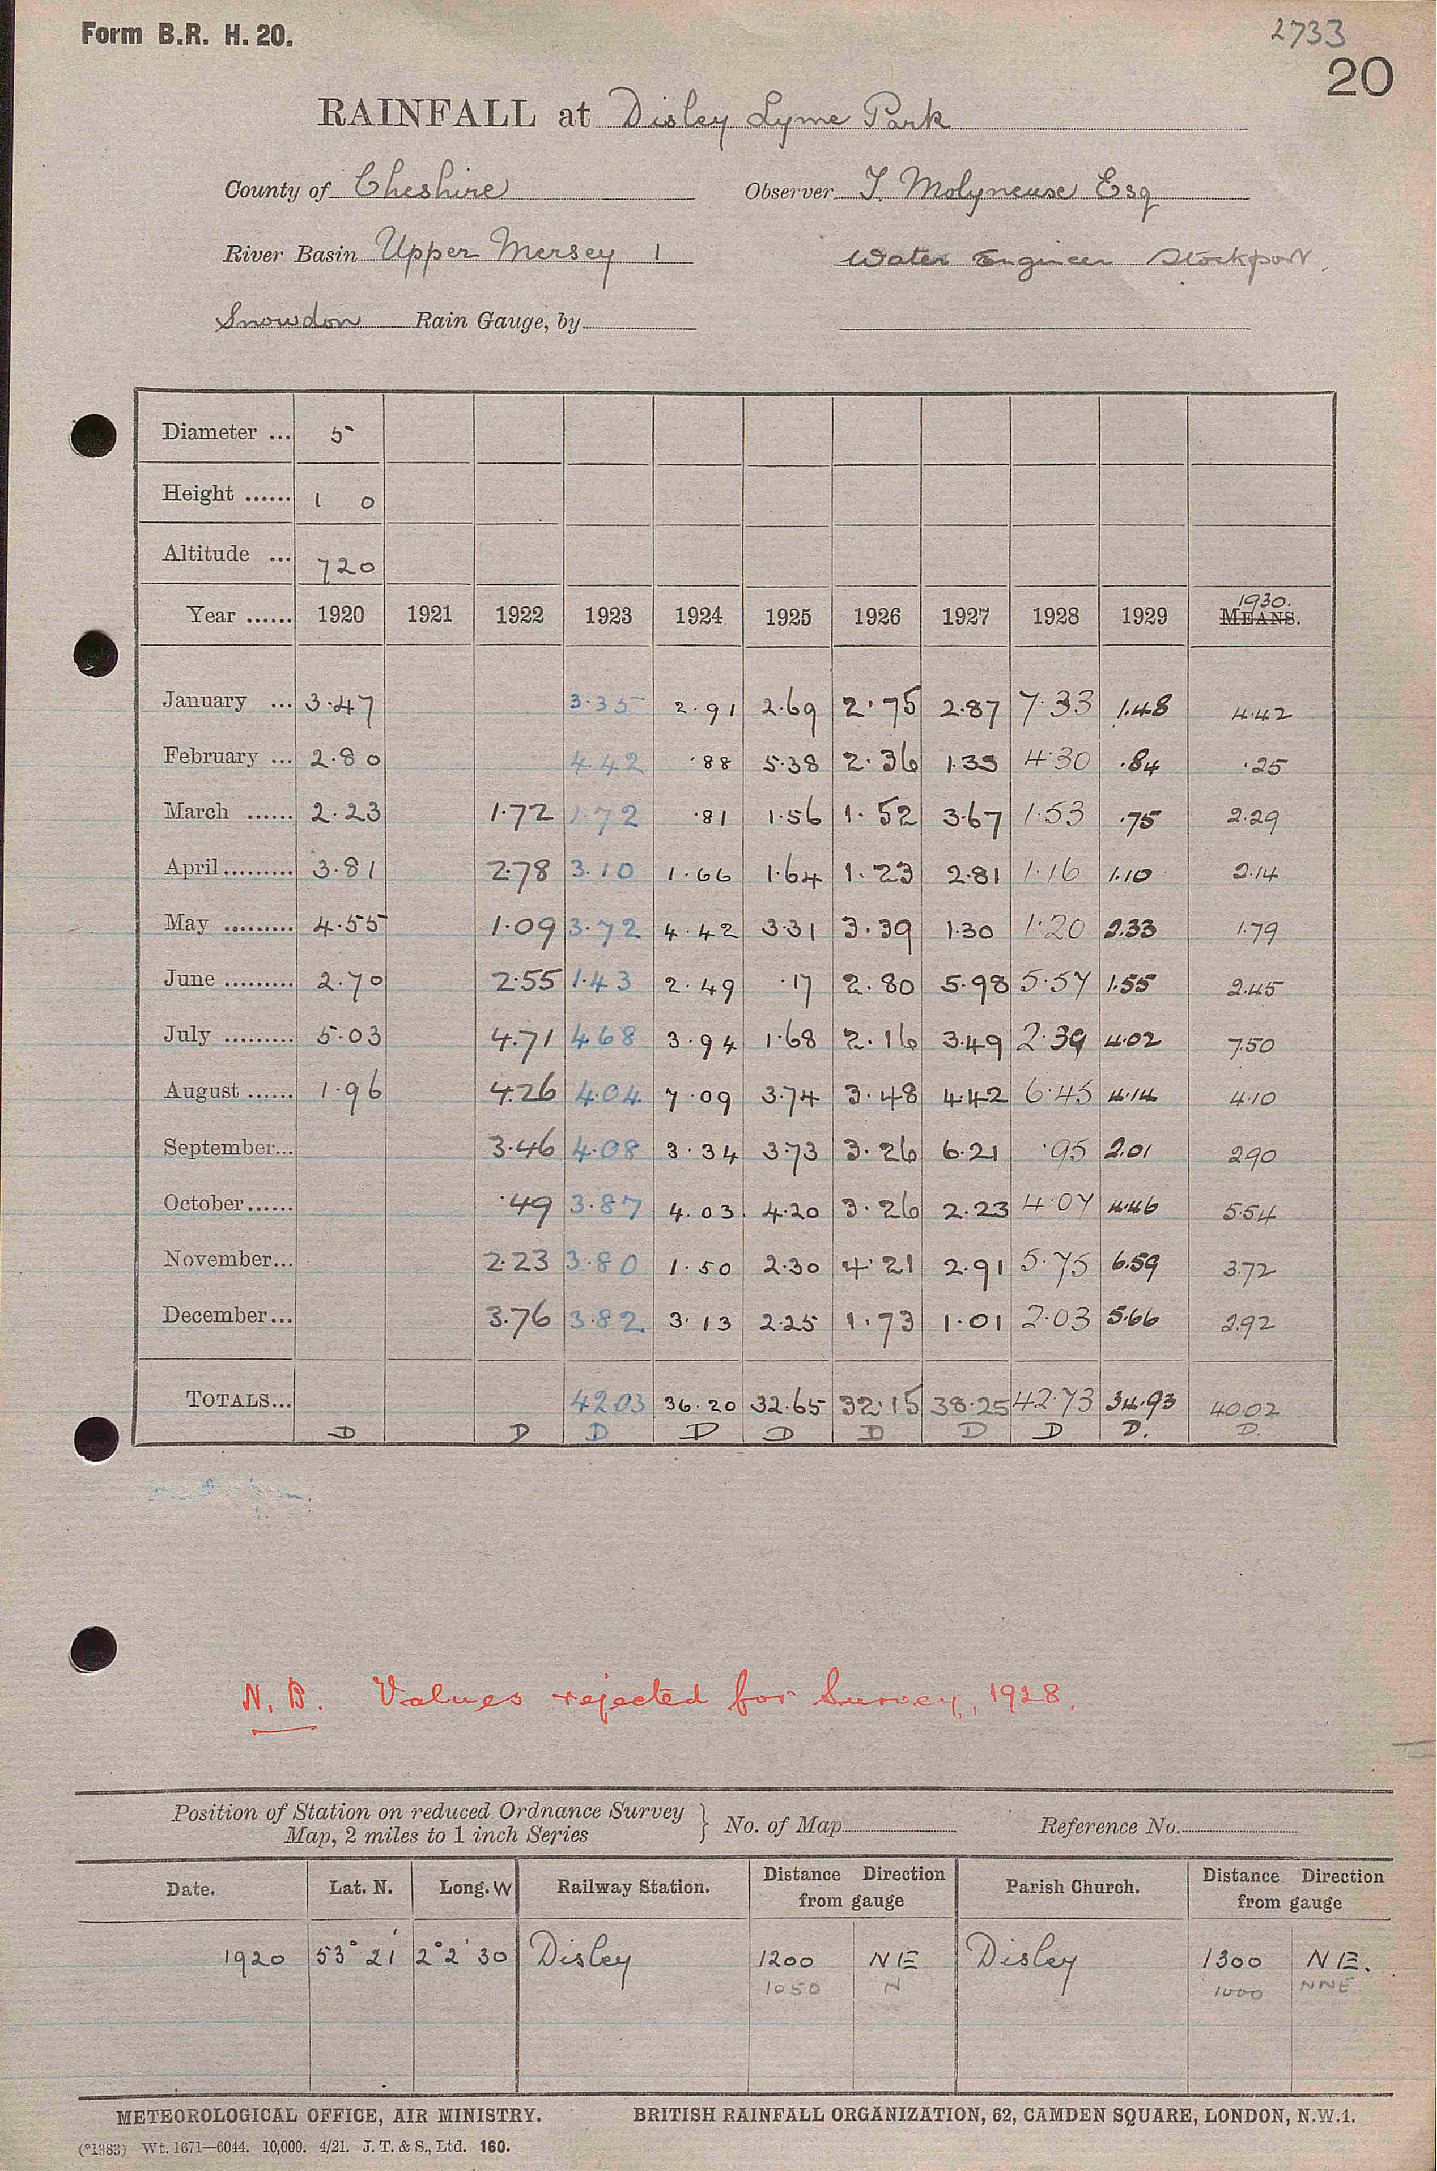 Form B.R. H. 20.
2733
20
RAINFALL at Disley Lyme Park
County of Cheshire Observer T. Molyneuse Esq
River Basin Upper Mersey 1 Water Engineer Stockport.
Snowdon Rain Gauge, by
Diameter ... 5
Height ...... 1 0
Altitude ... 720
1930.
Year ...... 1920 1921 1922 1923 1924 1925 1926 1927 1928 1929 MEANS.
January ... 3.47 3.35 2.91 2.69 2.75 2.87 7.33 1.48 4.42
February ... 2.80 4.42 .88 5.38 2.36 1.33 4.30 .84 .25
March ...... 2.23 1.72 1.72 .81 1.56 1.52 3.67 1.53 .75 2.29
April......... 3.81 2.78 3.10 1.66 1.64 1.23 2.81 1.16 1.10 2.14
May ......... 4.55 1.09 3.72 4.42 3.31 3.39 1.30 1.20 2.33 1.79
June ......... 2.70 2.55 1.43 2.49 .17 2.80 5.98 5.57 1.55 2.45
July ......... 5.03 4.71 4.68 3.94 1.68 2.16 3.49 2.39 4.02 7.50
August ...... 1.96 4.26 4.04 7.09 3.74 3.48 4.42 6.45 4.14 4.10
September... 3.46 4.08 3.34 3.73 3.26 6.21 .95 2.01 2.90
October...... .49 3.87 4.03 4.20 3.26 2.23 4.07 4.46 5.54
November... 2.23 3.80 1.50 2.30 4.21 2.91 5.75 6.59 3.72
December... 3.76 3.82 3.13 2.25 1.73 1.01 2.03 5.66 2.92
TOTALS... 42.03 36.20 32.65 32.15 38.25 42.73 34.93 40.02
D D D D D D D D D. D.
N.B. Values rejected for Survey, 1928.
Position of Station on reduced Ordnance Survey
Map, 2 miles to 1 inch Series } No. of Map Reference No.
Date. Lat. N. Long. W Railway Station. Distance Direction from gauge Parish Church. Distance Direction from gauge
1920 53° 21' 2° 2' 30 Disley 1200 NE Disley 1300 NE.
1050 N 1000 NNE
METEOROLOGICAL OFFICE, AIR MINISTRY. BRITISH RAINFALL ORGANIZATION, 62, CAMDEN SQUARE, LONDON, N.W.1.
(*1983) Wt. 1671—6044. 10,000. 4/21. J. T. & S., Ltd. 160.